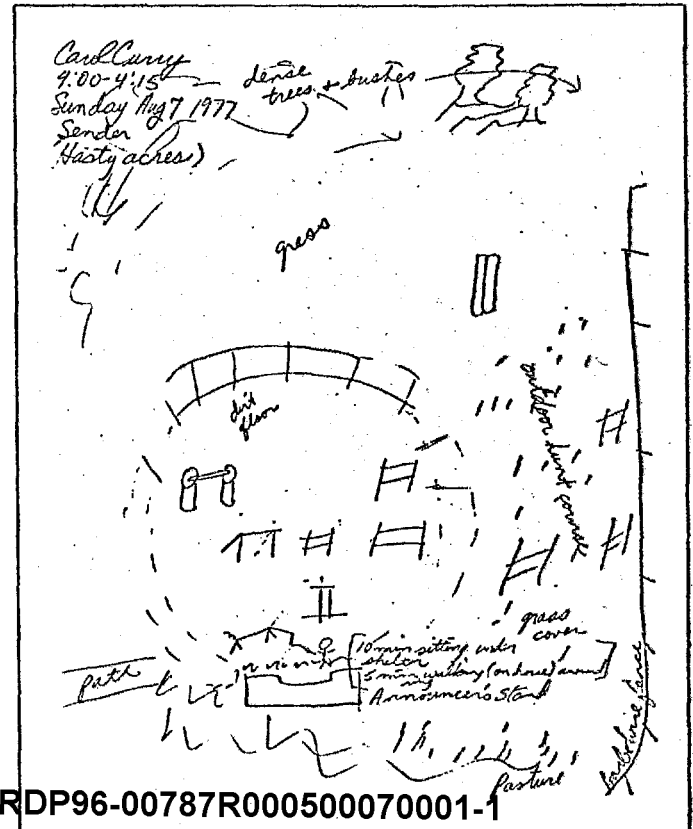 Carol Curry
4:00-4:15
Sunday Aug 7 1977
Sender
Hasty acres)
dense
trees + bushes
grass
dirt
floor
outdoor hunt course
grass
cover
10 min sitting under
shelter
5 min walking (on horse) around
ring
Announcer's Stand
path
Pasture
fence
RDP96-00787R000500070001-1